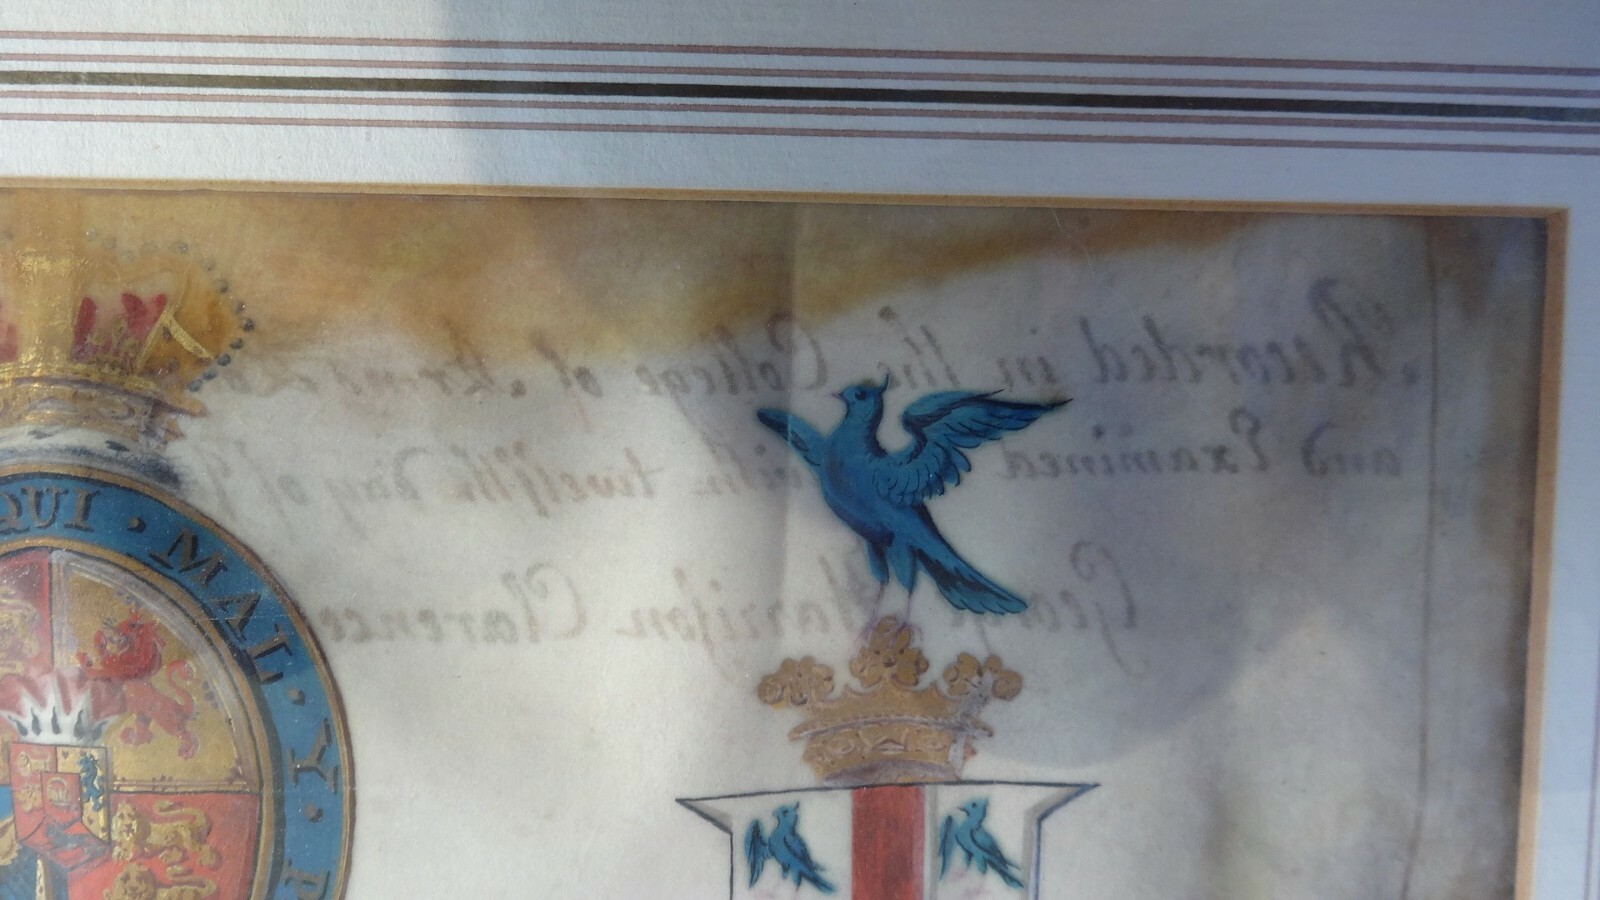 Recorded in the College of Arms Lo
and Examined this twelfth day of
George Harrison Clarenceux
QUI · MAL · Y · P